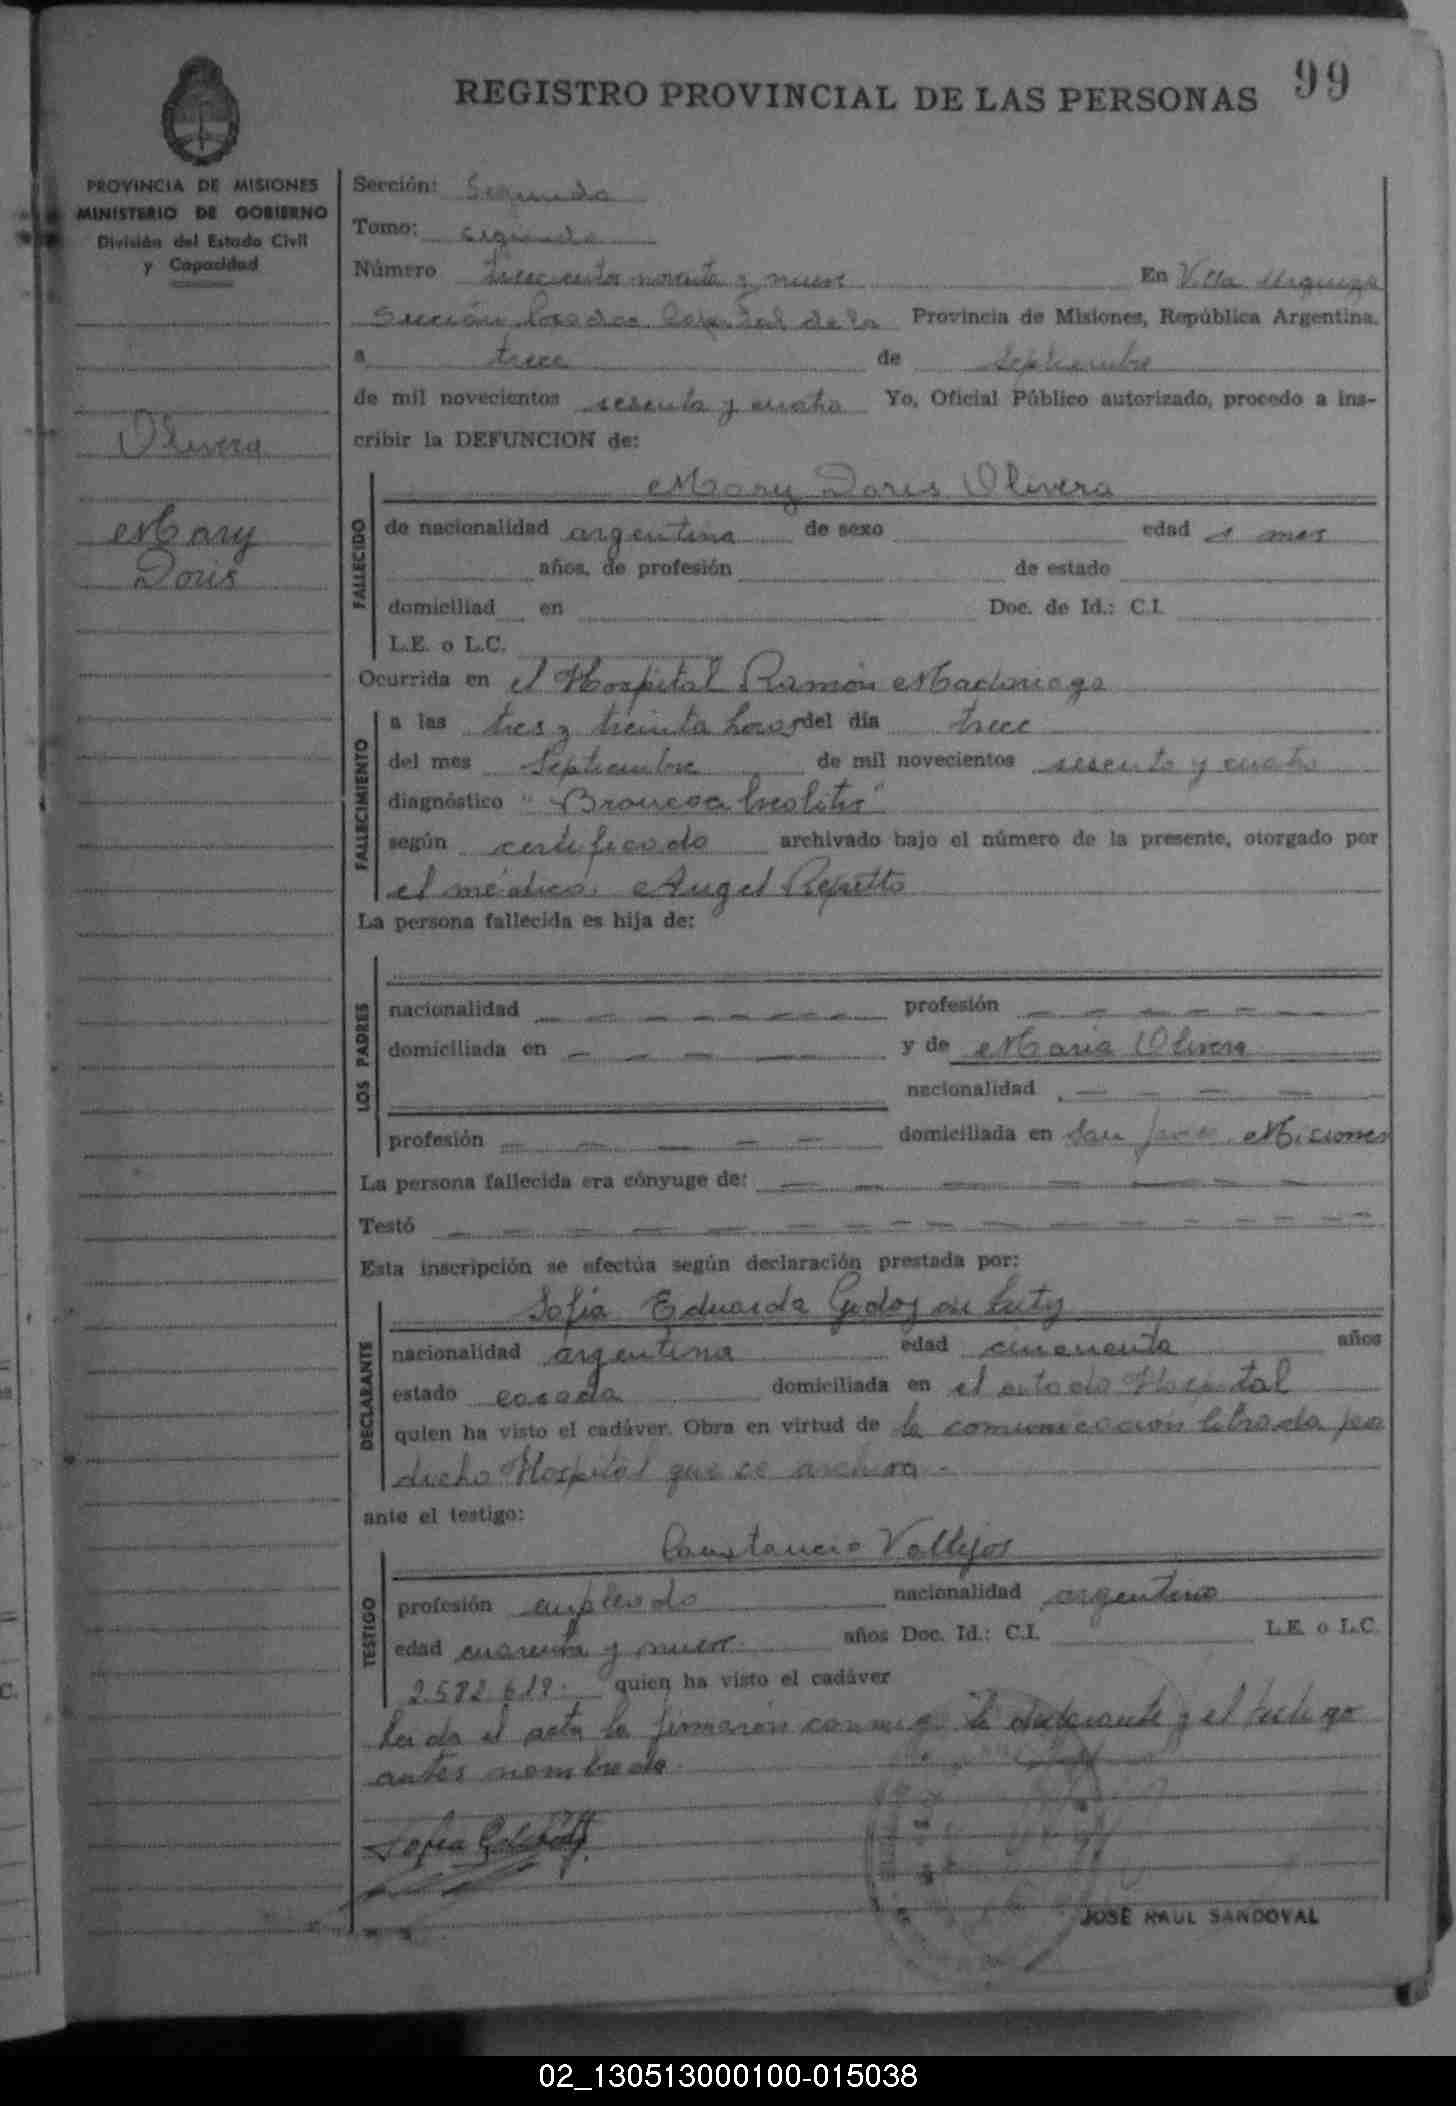 99
REGISTRO PROVINCIAL DE LAS PERSONAS
PROVINCIA DE MISIONES
MINISTERIO DE GOBIERNO
División del Estado Civil
y Capacidad
Olivera
Mary
Doris
Sección: Segunda
Tomo: segundo
Número trescientos noventa y nueve En Villa Urquiza
Sección Posadas Capital de la Provincia de Misiones, República Argentina,
a trece de septiembre
de mil novecientos sesenta y cuatro Yo, Oficial Público autorizado, procedo a ins-
cribir la DEFUNCION de:
Mary Doris Olivera
FALLECIDO
de nacionalidad argentina de sexo edad 1 mes
años, de profesión de estado
domiciliad en Doc. de Id.: C.I.
L.E. o L.C.
Ocurrida en el Hospital Ramón Madariaga
FALLECIMIENTO
a las tres y treinta horas del día trece
del mes Septiembre de mil novecientos sesenta y cuatro
diagnóstico
según certificado archivado bajo el número de la presente, otorgado por
el médico: Angel Repetto
La persona fallecida es hija de:
LOS PADRES
nacionalidad profesión
domiciliada en y de Maria Olivera
nacionalidad
profesión domiciliada en San José Misiones
La persona fallecida era cónyuge de:
Testó
Esta inscripción se efectúa según declaración prestada por:
Sofía Eduarda Godoy de
DECLARANTE
nacionalidad argentina edad cincuenta años
estado casada domiciliada en el citado Hospital
quien ha visto el cadáver. Obra en virtud de la comunicación librada por
dicho Hospital que se archiva.-
ante el testigo:
Constancio Vallejos
TESTIGO
profesión empleado nacionalidad argentino
edad cuarenta y nueve años Doc. Id.: C.I. L.E. o L.C.
quien ha visto el cadáver
Leída el acta la firmaron conmigo la declarante y el testigo
antes nombrado.
Sofia
JOSE RAUL SANDOVAL
02_130513000100-015038